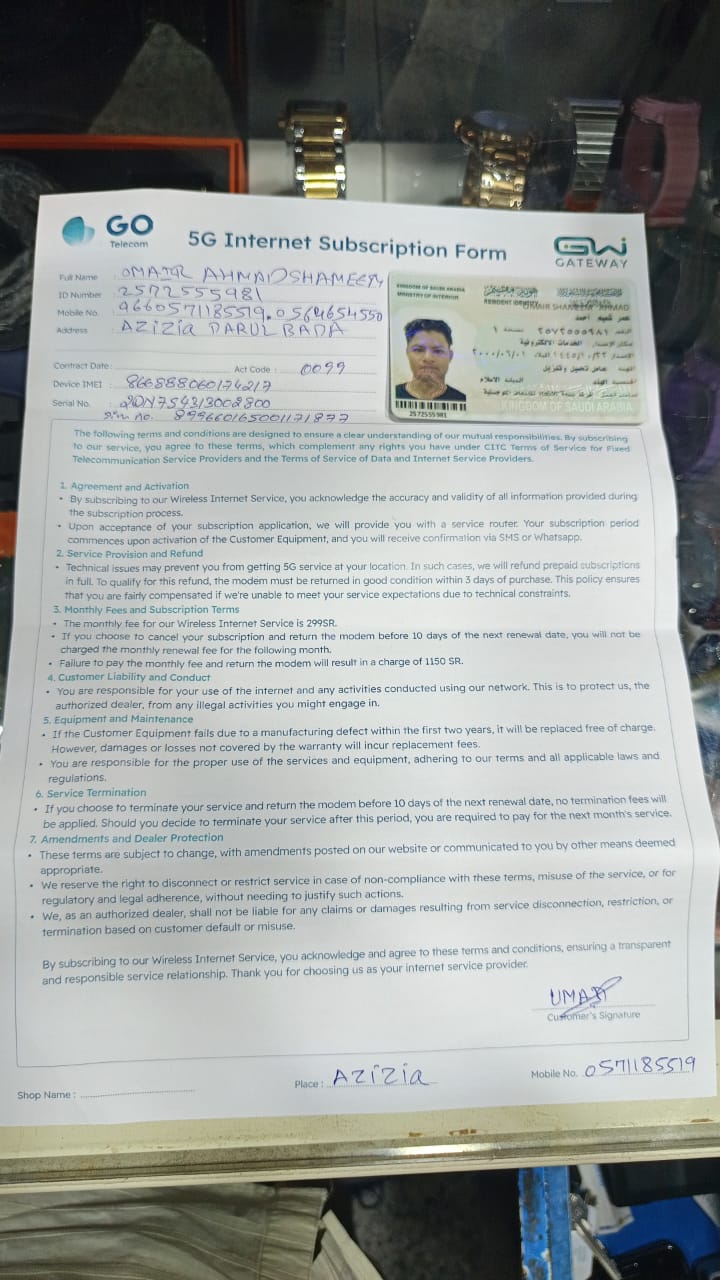 GO
Telecom
5G Internet Subscription Form
GW
GATEWAY
Full Name : OMAIR AHMAD SHAMEEM
ID Number : 2572555981
Mobile No. : 9660571185519. 0564654550
Address : AZIZIA DARUL BADA
Contract Date: Act Code : 0099
Device IMEI : 866888060174217
Serial No.
Sim no. 8996601650011718
KINGDOM OF SAUDI ARABIA
MINISTRY OF INTERIOR
RESIDENT IDENTITY
SHAMEEM AHMAD
عمير شميم احمد
2572555981
KINGDOM OF SAUDI ARABIA
The following terms and conditions are designed to ensure a clear understanding of our mutual responsibilities. By subscribing
to our service, you agree to these terms, which complement any rights you have under CITC Terms of Service for Fixed
Telecommunication Service Providers and the Terms of Service of Data and Internet Service Providers.
1. Agreement and Activation
• By subscribing to our Wireless Internet Service, you acknowledge the accuracy and validity of all information provided during
the subscription process.
• Upon acceptance of your subscription application, we will provide you with a service router. Your subscription period
commences upon activation of the Customer Equipment, and you will receive confirmation via SMS or Whatsapp.
2. Service Provision and Refund
• Technical issues may prevent you from getting 5G service at your location. In such cases, we will refund prepaid subscriptions
in full. To qualify for this refund, the modem must be returned in good condition within 3 days of purchase. This policy ensures
that you are fairly compensated if we're unable to meet your service expectations due to technical constraints.
3. Monthly Fees and Subscription Terms
• The monthly fee for our Wireless Internet Service is 299SR.
• If you choose to cancel your subscription and return the modem before 10 days of the next renewal date, you will not be
charged the monthly renewal fee for the following month.
• Failure to pay the monthly fee and return the modem will result in a charge of 1150 SR.
4. Customer Liability and Conduct
• You are responsible for your use of the internet and any activities conducted using our network. This is to protect us, the
authorized dealer, from any illegal activities you might engage in.
5. Equipment and Maintenance
• If the Customer Equipment fails due to a manufacturing defect within the first two years, it will be replaced free of charge.
However, damages or losses not covered by the warranty will incur replacement fees.
• You are responsible for the proper use of the services and equipment, adhering to our terms and all applicable laws and
regulations.
6. Service Termination
• If you choose to terminate your service and return the modem before 10 days of the next renewal date, no termination fees will
be applied. Should you decide to terminate your service after this period, you are required to pay for the next month's service.
7. Amendments and Dealer Protection
• These terms are subject to change, with amendments posted on our website or communicated to you by other means deemed
appropriate.
• We reserve the right to disconnect or restrict service in case of non-compliance with these terms, misuse of the service, or for
regulatory and legal adherence, without needing to justify such actions.
• We, as an authorized dealer, shall not be liable for any claims or damages resulting from service disconnection, restriction, or
termination based on customer default or misuse.
By subscribing to our Wireless Internet Service, you acknowledge and agree to these terms and conditions, ensuring a transparent
and responsible service relationship. Thank you for choosing us as your internet service provider.
UMAIR
Customer's Signature
Shop Name : Place : AZIZIA Mobile No. 0571185519